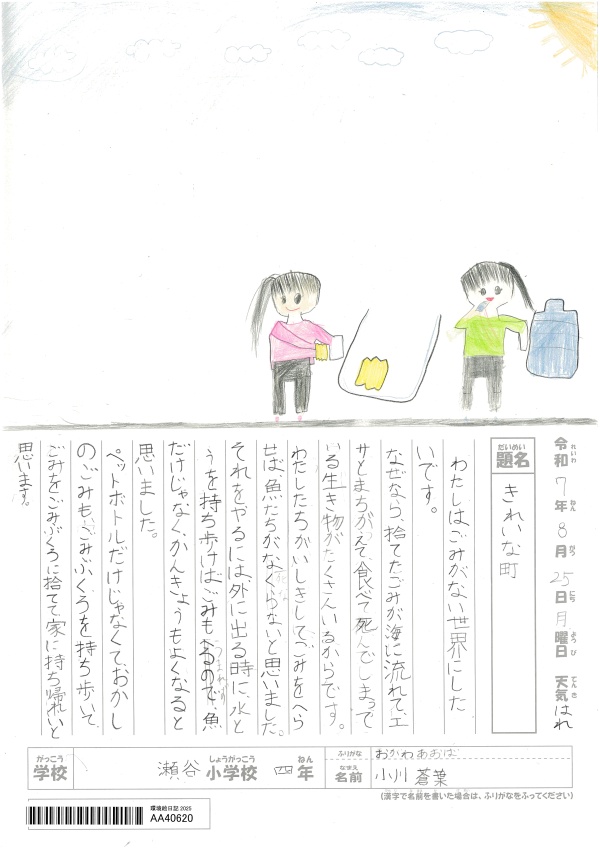 令和7年8月25日月曜日 天気はれ
れいわ ねん がつ にち ようび てんき
だいめい
題名 きれいな町
わたしはごみがない世界にした
いです。
なぜなら、捨てたごみが海に流れてエ
サとまちがえて、食べて死んでしまって
いる生き物がたくさんいるからです。
わたしたちがいしきしてごみをへら
せば、魚たちがなくならないと思いました。
それをやるには、外に出る時に、水と
うを持ち歩けばごみもへるので、魚
だけじゃなく、かんきょうもよくなると
思いました。
ペットボトルだけじゃなくて、おかし
のごみも、ごみぶくろを持ち歩いて、
ごみをごみぶくろに捨てて、家に持ち帰れいと
思います。
がっこう しょうがっこう ねん
学校 瀬谷小学校 四年
ふりがな おがわあおば
なまえ
名前 小川 蒼葉
(漢字で名前を書いた場合は、ふりがなをふってください)
環境絵日記2025
AA40620